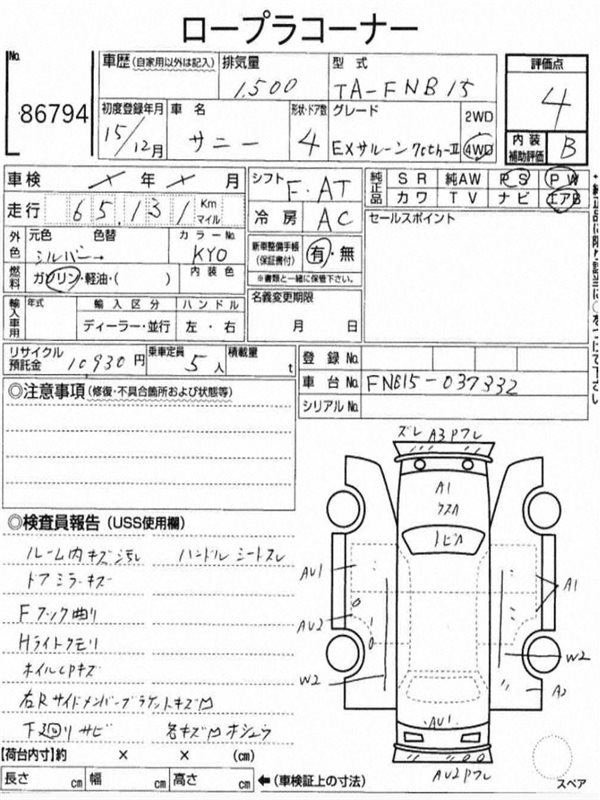 ロープラコーナー
No.
86794
車歴(自家用以外は記入)
排気量
1,500
型式
TA-FNB15
評価点
4
内装
補助評価
B
初度登録年月
15/12月
車名
サニー
形状・ドア数
4
グレード
EXサルーン70th-II
2WD
4WD
車検 × 年 × 月
シフト F.AT
純正品
SR 純AW PS PW
カワ TV ナビ エアB
走行 65,131 Km
マイル
冷房 AC
セールスポイント
外色
元色 色替
シルバー→
カラーNo.
KY0
新車整備手帳
(保証書付)
有・無
※書類と一緒に保管下さい。
燃料
ガソリン・軽油・( )
内装色
名義変更期限
月 日
輸入車用
年式
輸入区分
ディーラー・並行
ハンドル
左・右
リサイクル
預託金
10,930円
乗車定員
5人
積載量
t
登録No.
車台No. FNB15-037332
シリアルNo.
◎注意事項(修復・不具合箇所および状態等)
◎検査員報告(USS使用欄)
ルーム内キズ汚レ ハンドル シートスレ
ドアミラーキズ
Fフック曲り
Hライトクモリ
ホイルCPキズ
右Rサイドメンバーブラケットキズ凹
下廻りサビ 各キズ凹
【荷台内寸】約 × × (cm)
長さ cm 幅 cm 高さ cm
←(車検証上の寸法)
ズレ A3Pワレ
A1
トビA
AU1
AU2
W2
A1
W2
A2
AU1
AU2Pワレ
スペア